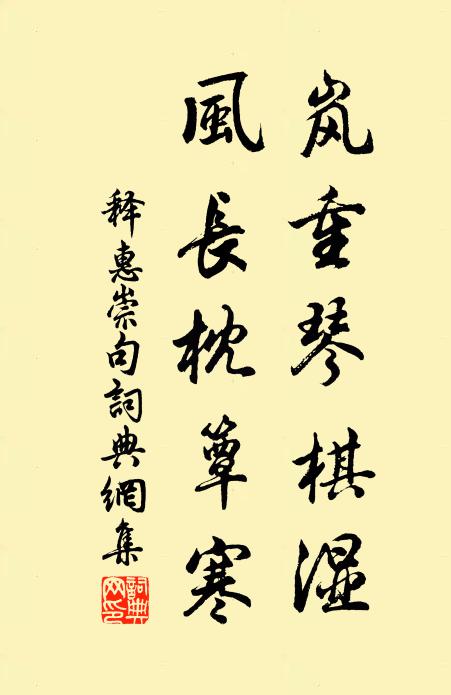 岚重琴棋濕
風長枕簟寒
释惠崇句詞典網集
詞典网印